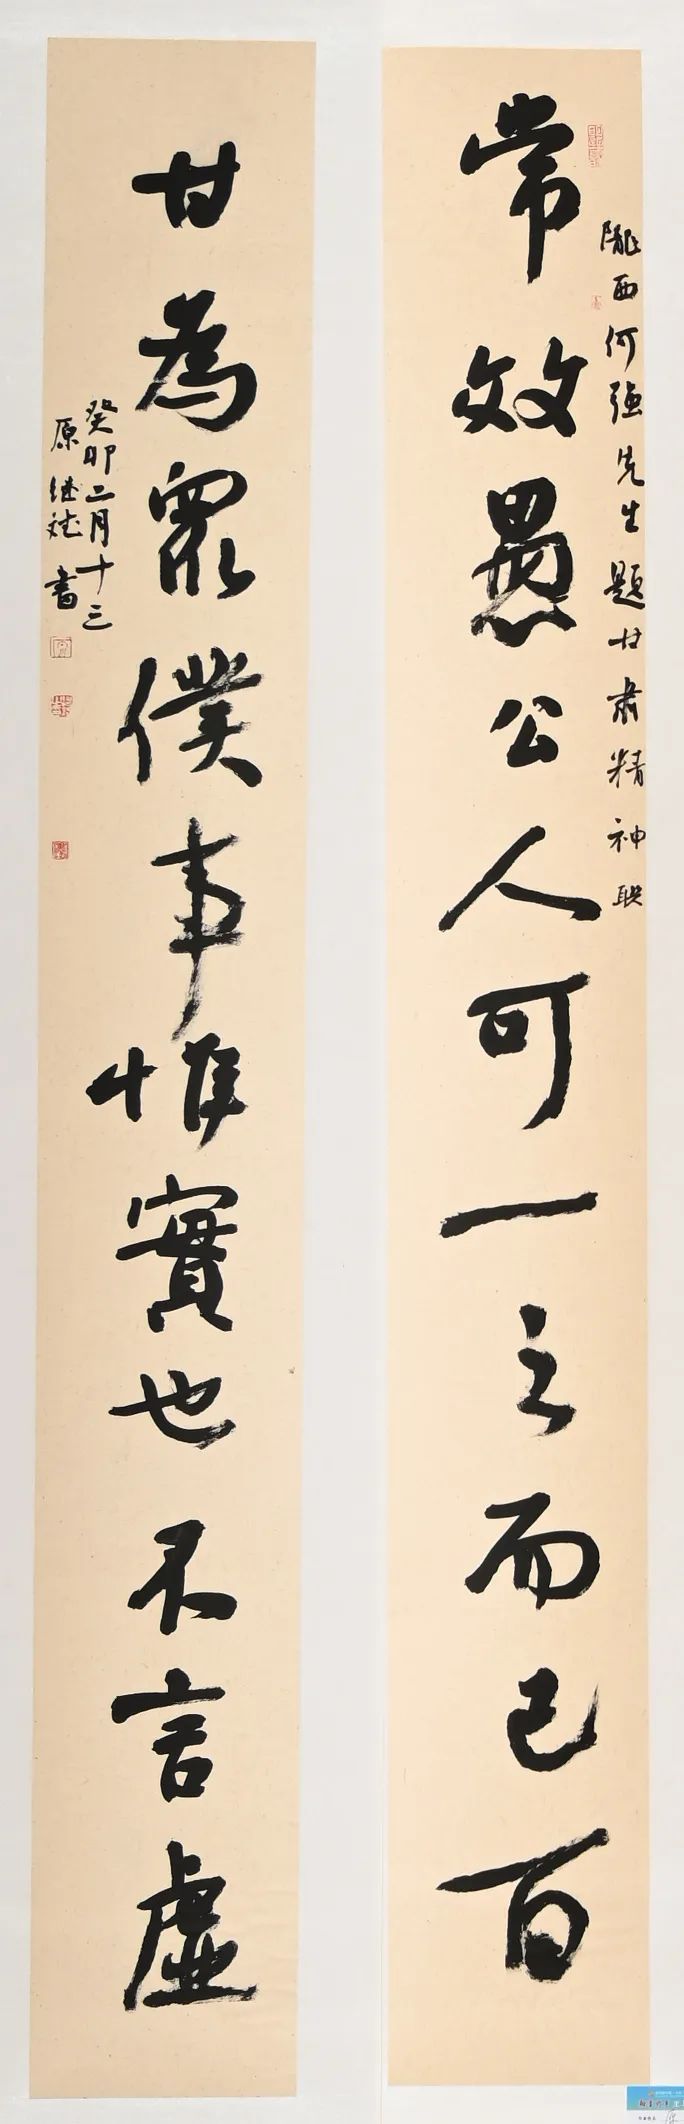 常效愚公人可一之而已百
隴西何强先生题甘肃精神联
甘為眾僕事惟實也不言虛
癸卯二月十三
原继斌書